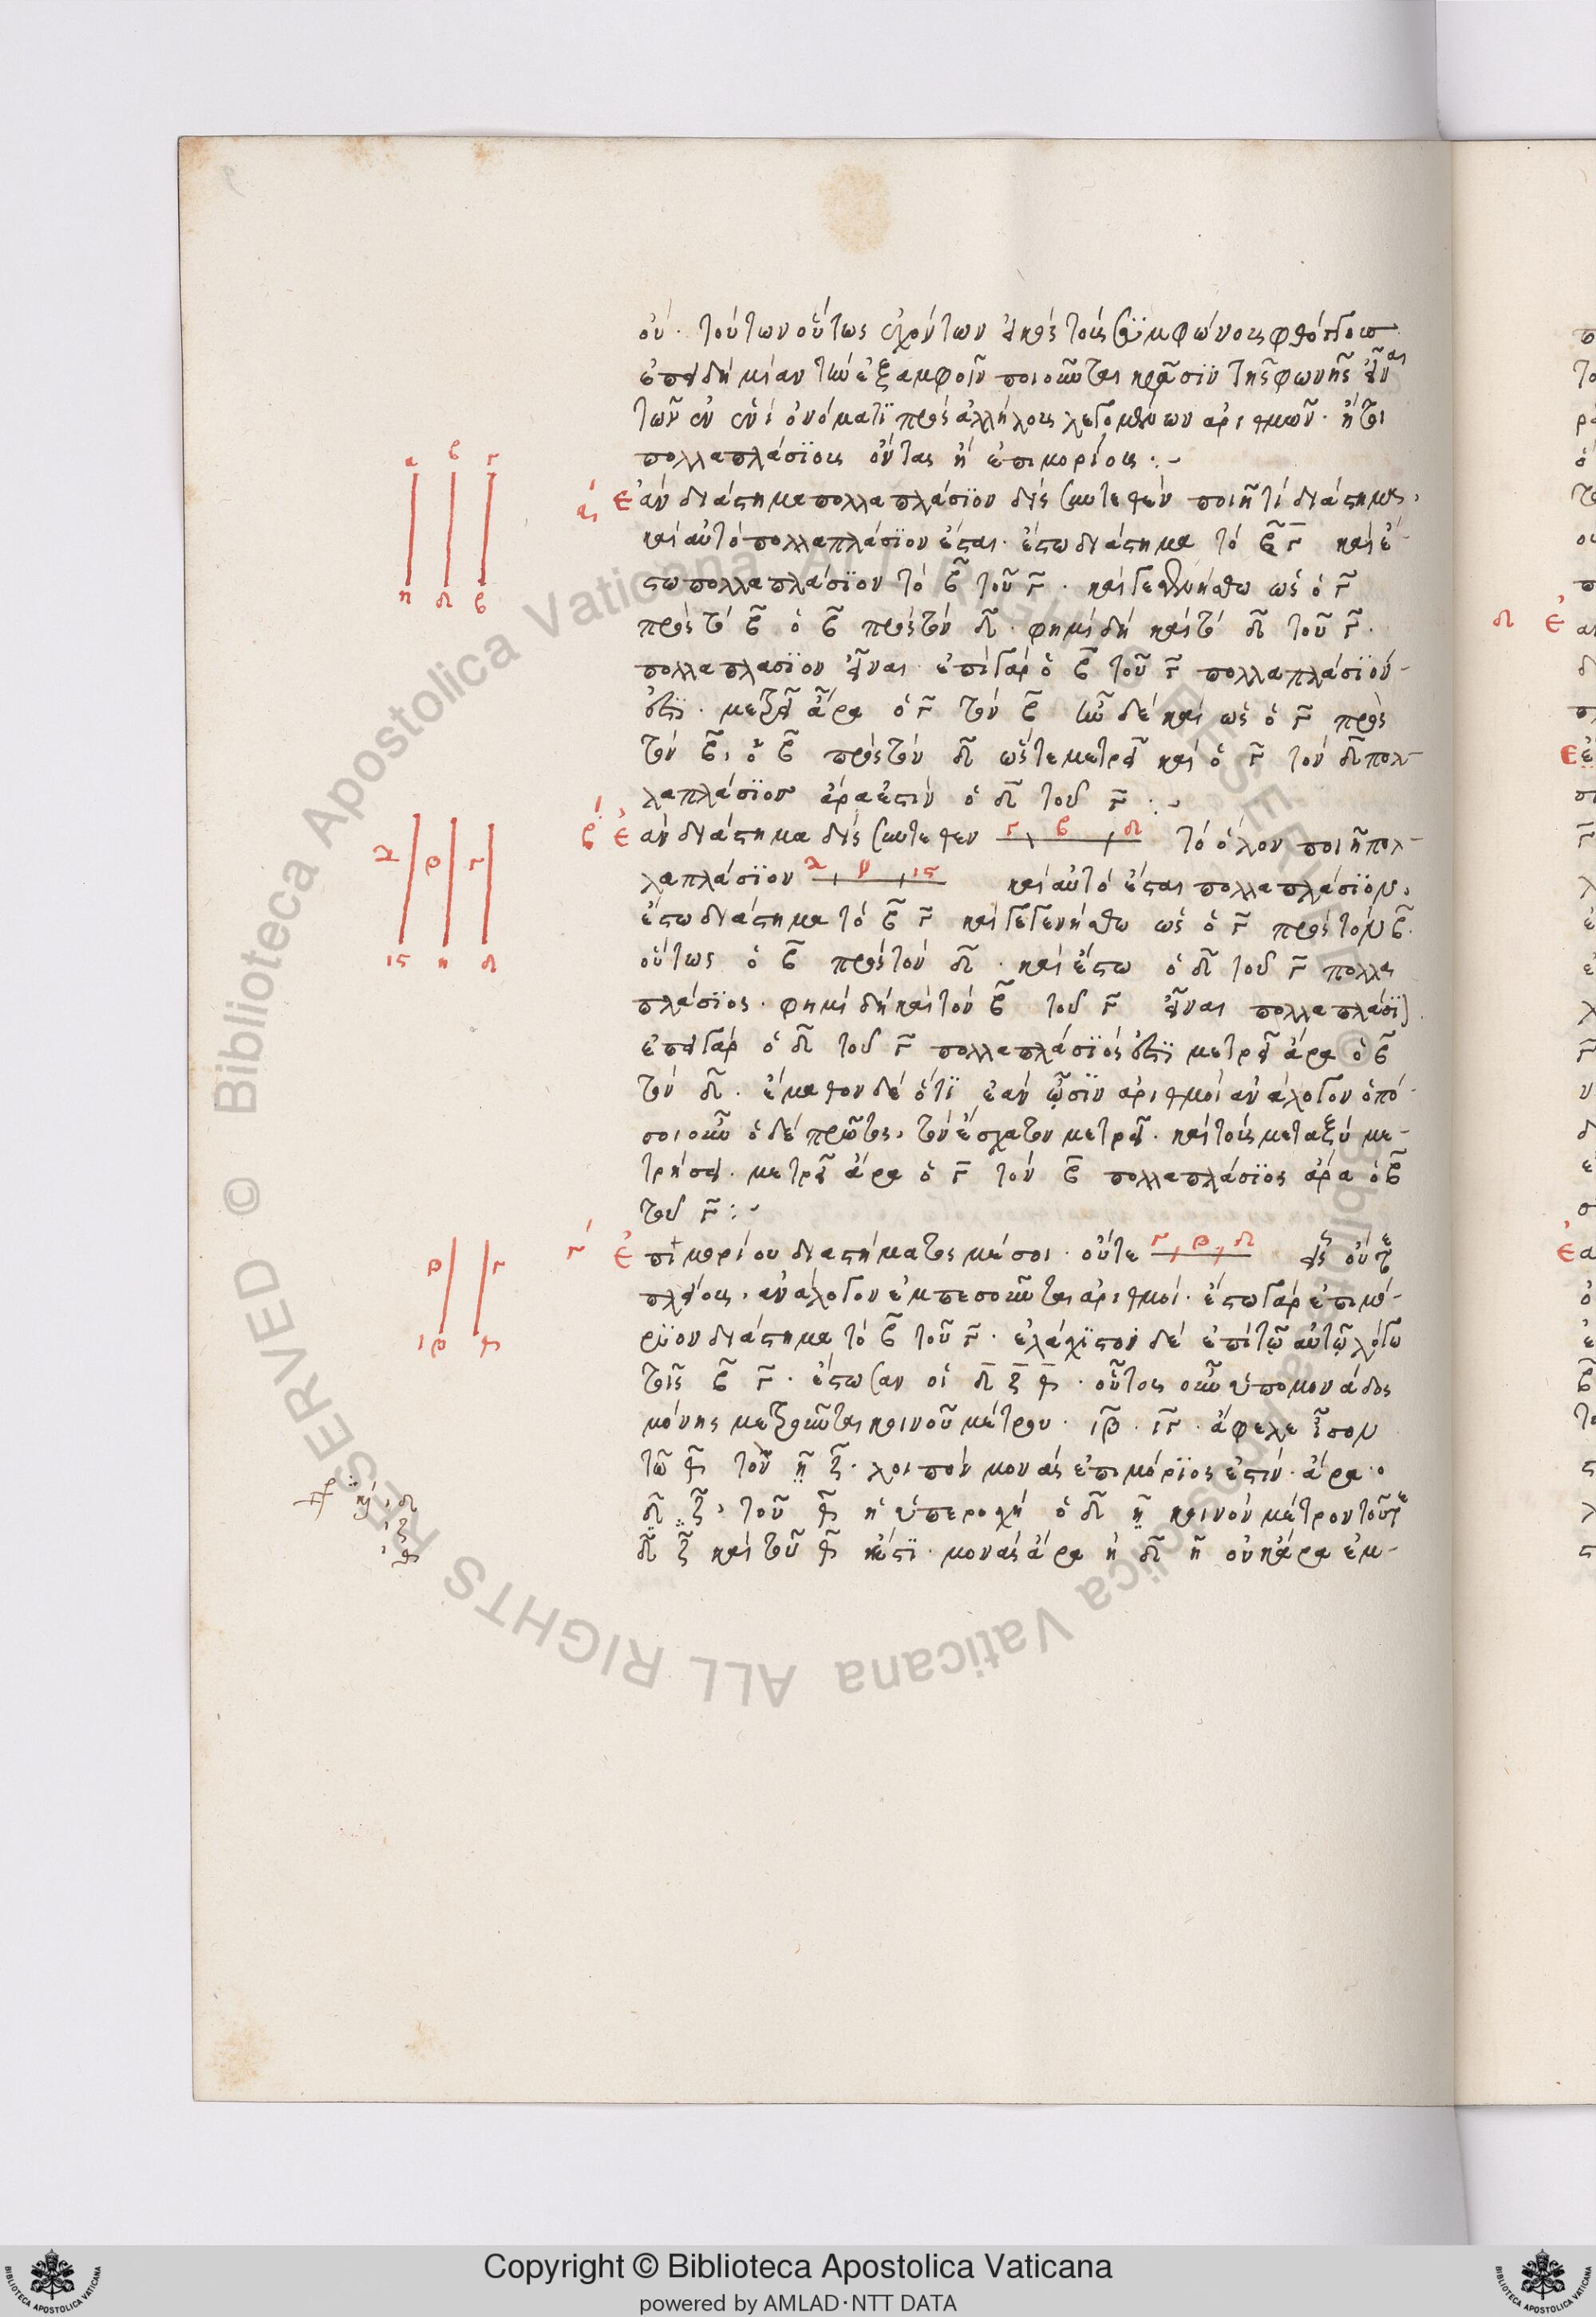 οὐ. τούτων οὕτως ἐχόντων εἰκὸς τοὺς συμφώνους φθόγγους
ἐπειδὴ μίαν τὴν ἐξ ἀμφοῖν ποιοῦνται κρᾶσϊν τῆς φωνῆς εἶναι
τῶν ἐν ἑνὶ ὀνόματϊ πρὸς ἀλλήλους λεγομένων ἀριθμῶν. ἤτοι
πολλαπλάσϊους ὄντας ἢ ἐπιμορίους :~
α Ἐὰν διάστημα πολλαπλάσϊον δὶς συντεθὲν ποιῆ τι διάστημα,
καὶ αὐτὸ πολλαπλάσϊον ἔσται. ἔστω διάστημα τὸ β γ καὶ ἔ-
στω πολλαπλάσϊον τὸ β τοῦ γ. καὶ γεγενήσθω ὡς ὁ γ
πρὸς τὸ β ὁ β πρὸς τὸν δ. φημὶ δὴ καὶ τὸ δ τοῦ γ.
πολλαπλασϊον εἶναι. ἐπὶ γὰρ ὁ β τοῦ γ πολλαπλάσϊόν
ἐστϊ. μετρεῖ ἄρα ὁ γ τὸν β ἦν δὲ καὶ ὡς ὁ γ πρὸς
τὸν β, ὁ β πρὸς τὸν δ ὥστε μετρεῖ καὶ ὁ γ τὸν δ πολ-
λαπλάσϊον ἄρα ἐστὶν ὁ δ τοῦ γ :~
β Ἐὰν διάστημα δὶς συντεθεν γ β δ τὸ ὅλον ποιῆ πολ-
λαπλάσϊον καὶ αὐτὸ ἔσται πολλαπλάσϊον,
ἔστω διάστημα τὸ β γ καὶ γεγενήσθω ὡς ὁ γ πρὸς τὸν β.
οὕτως ὁ β πρὸς τὸν δ. καὶ ἔστω ὁ δ τοῦ γ πολλα
πλάσϊος. φημὶ δὴ καὶ τὸν β τοῦ γ εἶναι πολλαπλάσϊ
ἐπεὶ γὰρ ὁ δ τοῦ γ πολλαπλάσϊός ἐστϊ μετρεῖ ἄρα ὁ β
τὸν δ. ἔμαθον δὲ ὅτϊ ἐὰν ὦσϊν ἀριθμοὶ ἀνάλογον ὁπό-
σοι οὖν ὁ δὲ πρῶτος, τὸν ἔσχατον μετρεῖ. καὶ τοὺς μεταξὺ με-
τρήσει. μετρεῖ ἄρα ὁ γ τὸν β πολλαπλάσϊος ἄρα ὁ β
τοῦ γ :~
γ Ἐπιμορίου διαστήματος μέσοι. οὔτε γ β δ εἷς οὔτε
πλείους, ἀνάλογον ἐμπεσοῦνται ἀριθμοί. ἔστω γὰρ ἐπιμό-
ρϊον διάστημα τὸ β τοῦ γ. ἐλάχϊστοι δὲ ἐπὶ τῷ αὐτῷ λόγω
τοῖς β γ. ἔστωσαν οἱ δ ξ θ. οὗτοι οὖν ὑπο μονάδος
μόνης μετροῦνται κοινοῦ μέτρου. ιβ. ιγ. ἄφελε ἴσον
τῶ θ τὸν η ξ. λοιπὸν μονὰς ἐπιμόρϊος ἐστίν. ἄρα ὁ
δ ξ, τοῦ θ ἡ ὑπεροχὴ ὁ δ η κοινὸν μέτρον τοῦτε
δ ξ καὶ τοῦ θ ἐστϊ. μονὰς ἄρα ἡ δ η οὐκ ἄρα ἐμ-
α β γ
η δ β
β γ
ις η δ
β γ
ιβ θ
Copyright © Biblioteca Apostolica Vaticana
powered by AMLAD·NTT DATA
© Biblioteca Apostolica Vaticana ALL RIGHTS RESERVED
© Biblioteca Apostolica Vaticana ALL RIGHTS RESERVED
BIBLIOTECA APOSTOLICA VATICANA
BIBLIOTECA APOSTOLICA VATICANA